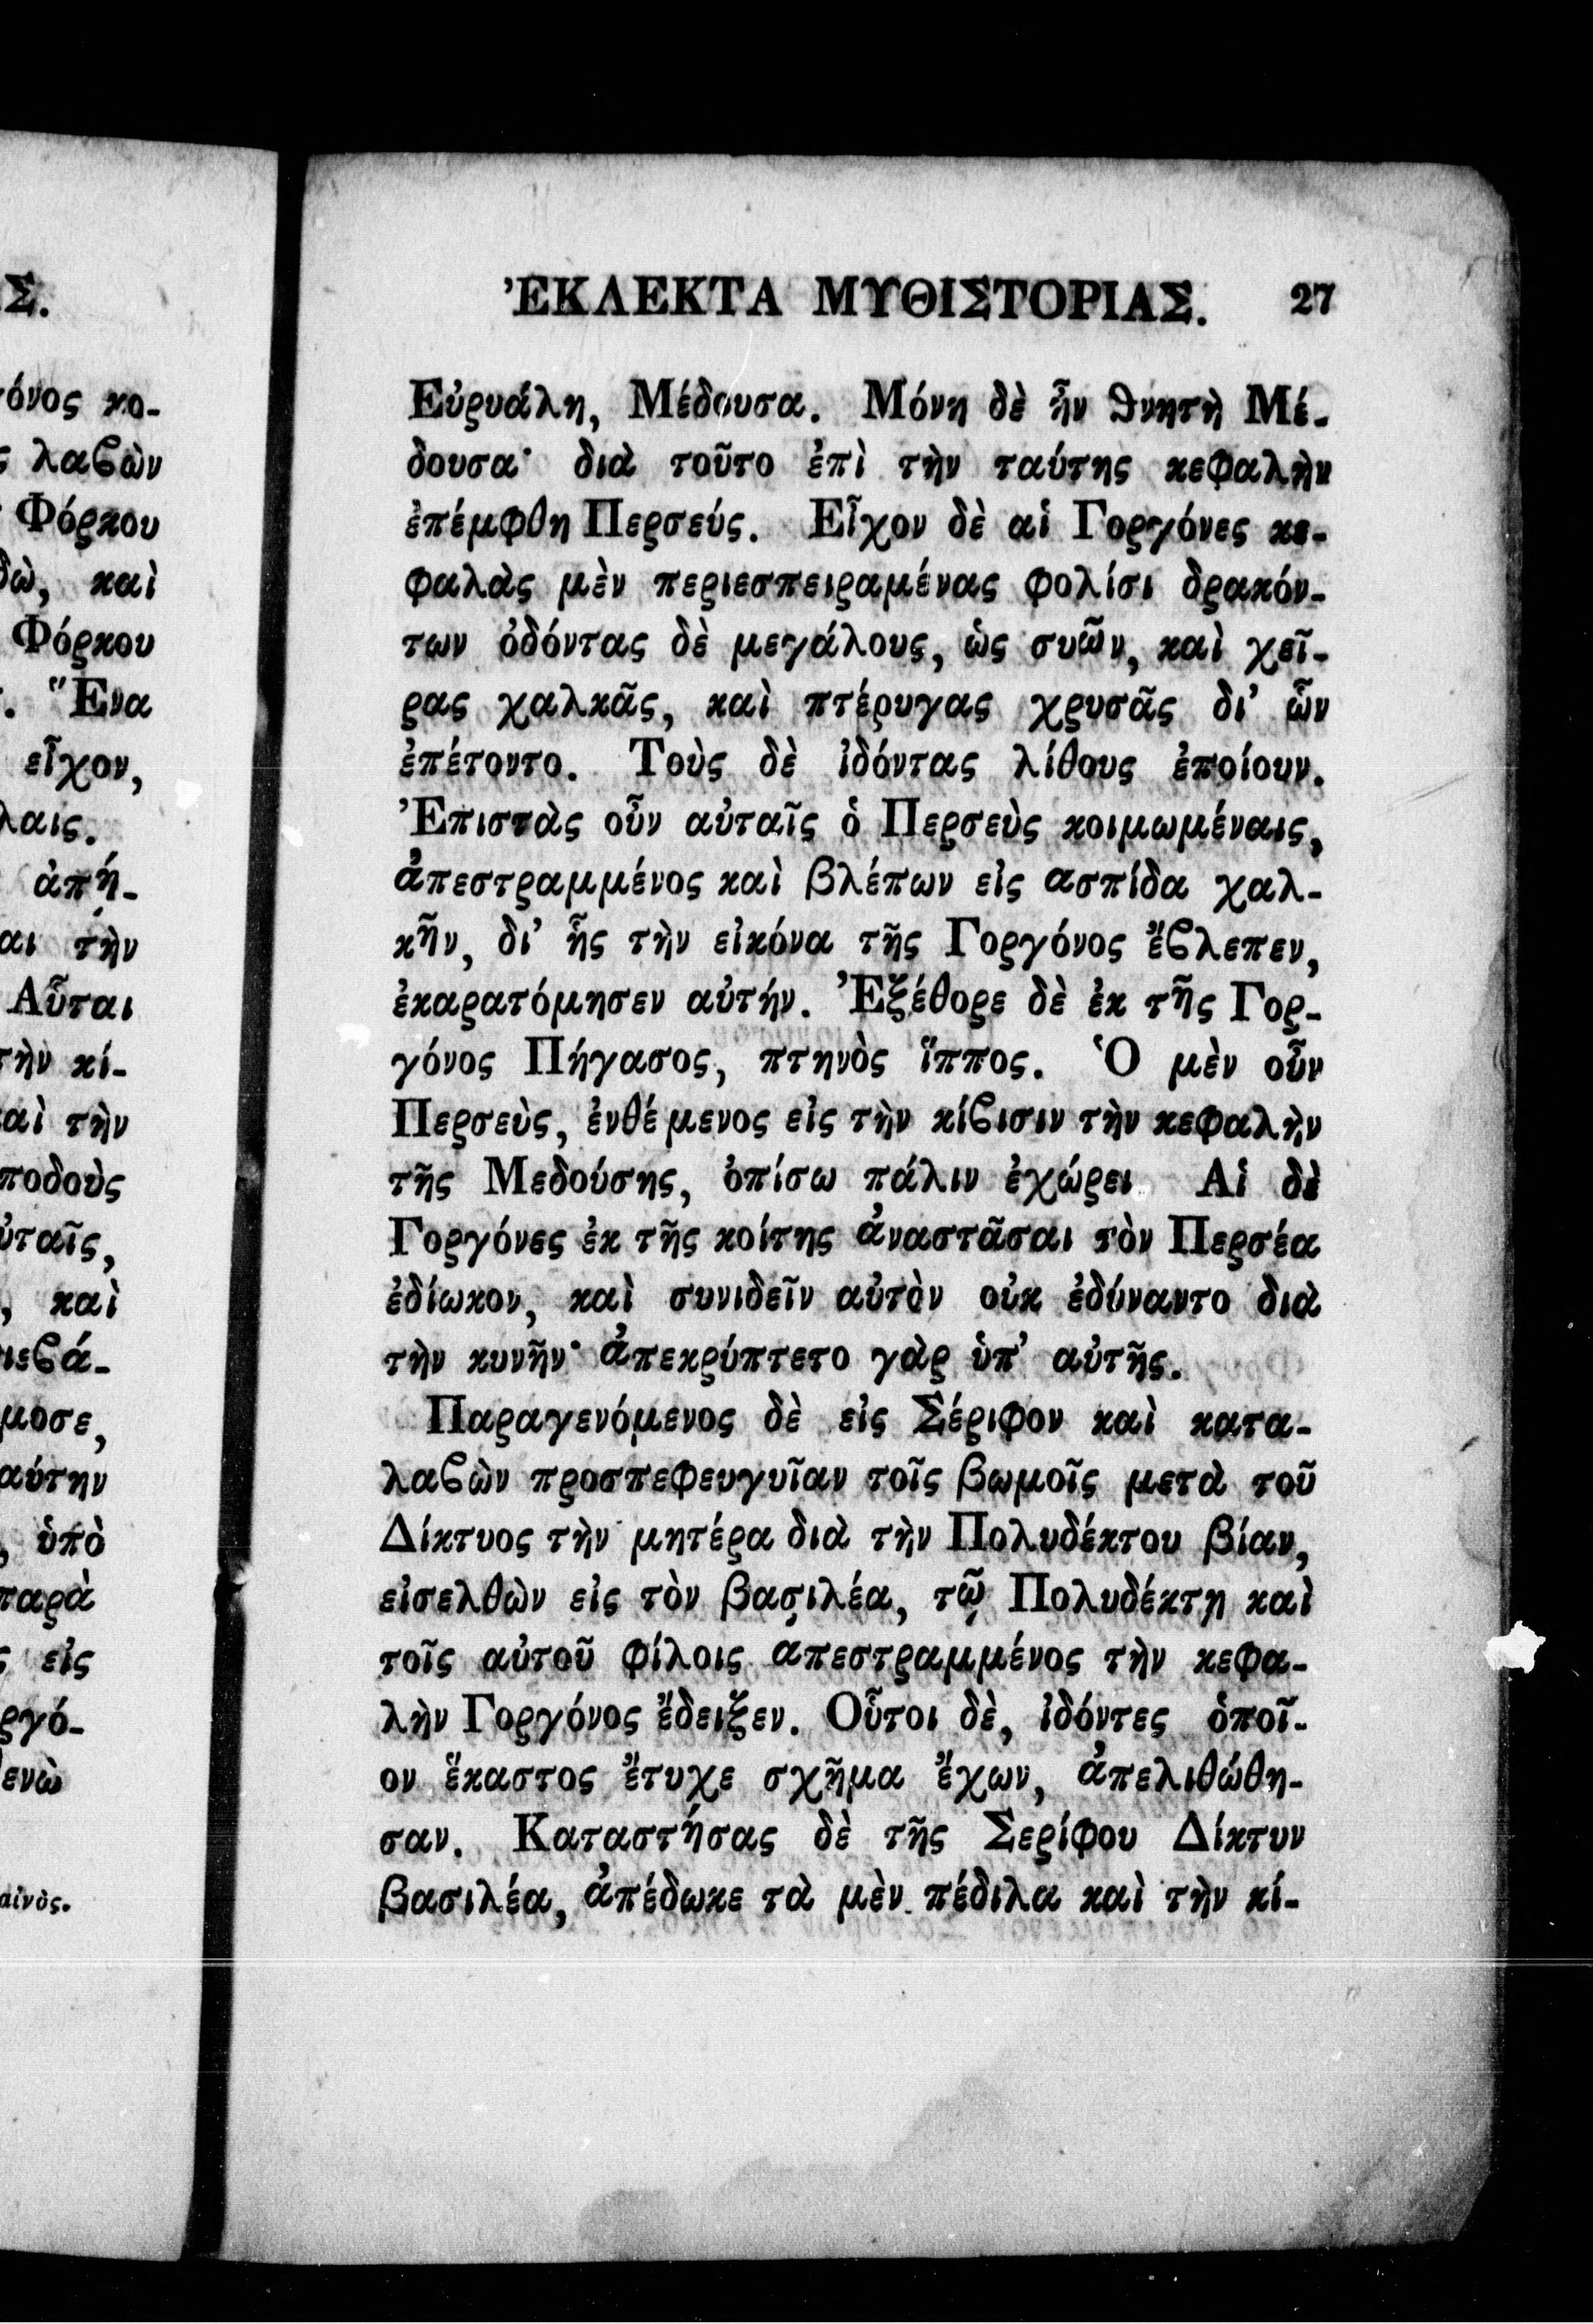 Σ.
όνος κο-
λαϐὼν
Φόρκου
δὼ, καὶ
Φόρκου
Ἕνα
εἶχον,
λαις.
ἀπή-
αι τὴν
Αὗται
τὴν κί-
αὶ τὴν
ποδοὺς
ὐταῖς,
, καὶ
ιεϐά-
μοσε,
αύτην
, ὑπὸ
παρὰ
ς εἰς
ργό-
ενὼ
αἰνὸς.
ἘΚΛΕΚΤΑ ΜΥΘΙΣΤΟΡΙΑΣ. 27
Εὐρυάλη, Μέδουσα. Μόνη δὲ ἦν ϑνητὴ Μέ-
δουσα· διὰ τοῦτο ἐπὶ τὴν ταύτης κεφαλὴν
ἐπέμφθη Περσεύς. Εἶχον δὲ αἱ Γοργόνες κε-
φαλὰς μὲν περιεσπειραμένας φολίσι δρακόν-
των ὀδόντας δὲ μεγάλους, ὡς συῶν, καὶ χεῖ-
ρας χαλκᾶς, καὶ πτέρυγας χρυσᾶς δι’ ὧν
ἐπέτοντο. Τοὺς δὲ ἰδόντας λίθους ἐποίουν.
Ἐπιστὰς οὖν αὐταῖς ὁ Περσεὺς κοιμωμέναις,
ἀπεστραμμένος καὶ βλέπων εἰς ασπίδα χαλ-
κῆν, δι’ ἧς τὴν εἰκόνα τῆς Γοργόνος ἔϐλεπεν,
ἐκαρατόμησεν αὐτήν. Ἐξέθορε δὲ ἐκ τῆς Γορ-
γόνος Πήγασος, πτηνὸς ἵππος. Ὁ μὲν οὖν
Περσεὺς, ἐνθέμενος εἰς τὴν κίϐισιν τὴν κεφαλὴν
τῆς Μεδούσης, ὀπίσω πάλιν ἐχώρει. Αἱ δὲ
Γοργόνες ἐκ τῆς κοίτης ἀναστᾶσαι τὸν Περσέα
ἐδίωκον, καὶ συνιδεῖν αὐτὸν οὐκ ἐδύναντο διὰ
τὴν κυνῆν· ἀπεκρύπτετο γὰρ ὑπ’ αὐτῆς.
Παραγενόμενος δὲ εἰς Σέριφον καὶ κατα-
λαϐὼν προσπεφευγυῖαν τοῖς βωμοῖς μετὰ τοῦ
Δίκτυος τὴν μητέρα διὰ τὴν Πολυδέκτου βίαν,
εἰσελθὼν εἰς τὸν βασιλέα, τῷ Πολυδέκτῃ καὶ
τοῖς αὐτοῦ φίλοις ἀπεστραμμένος τὴν κεφα-
λὴν Γοργόνος ἔδειξεν. Οὗτοι δὲ, ἰδόντες ὁποῖ-
ον ἕκαστος ἔτυχε σχῆμα ἔχων, ἀπελιθώθη-
σαν. Καταστήσας δὲ τῆς Σερίφου Δίκτυν
βασιλέα, ἀπέδωκε τὰ μὲν πέδιλα καὶ τὴν κί-